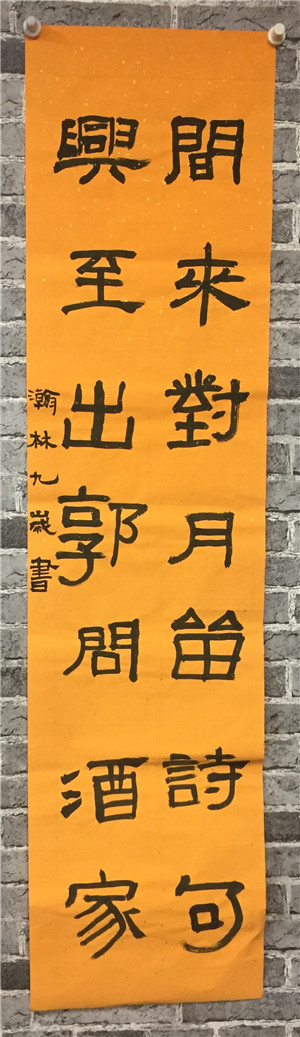 間來對月留詩句
興至出郭問酒家
瀚林九歲書